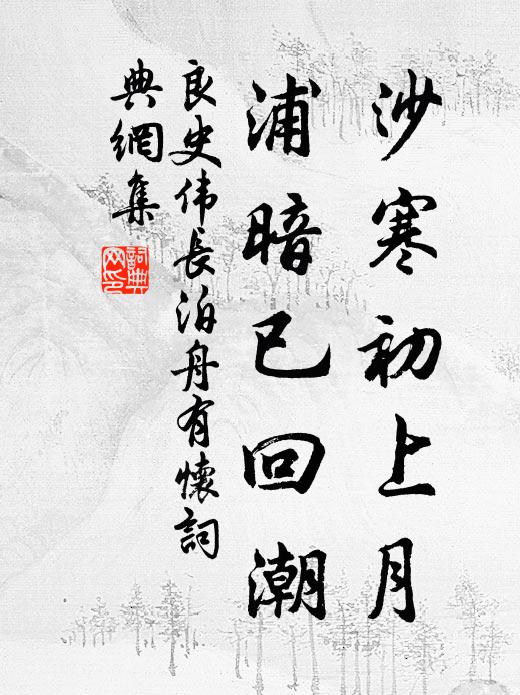 沙寒初上月
浦暗已回潮
良史伟長泊舟有懷詞
典網集
詞典
网印